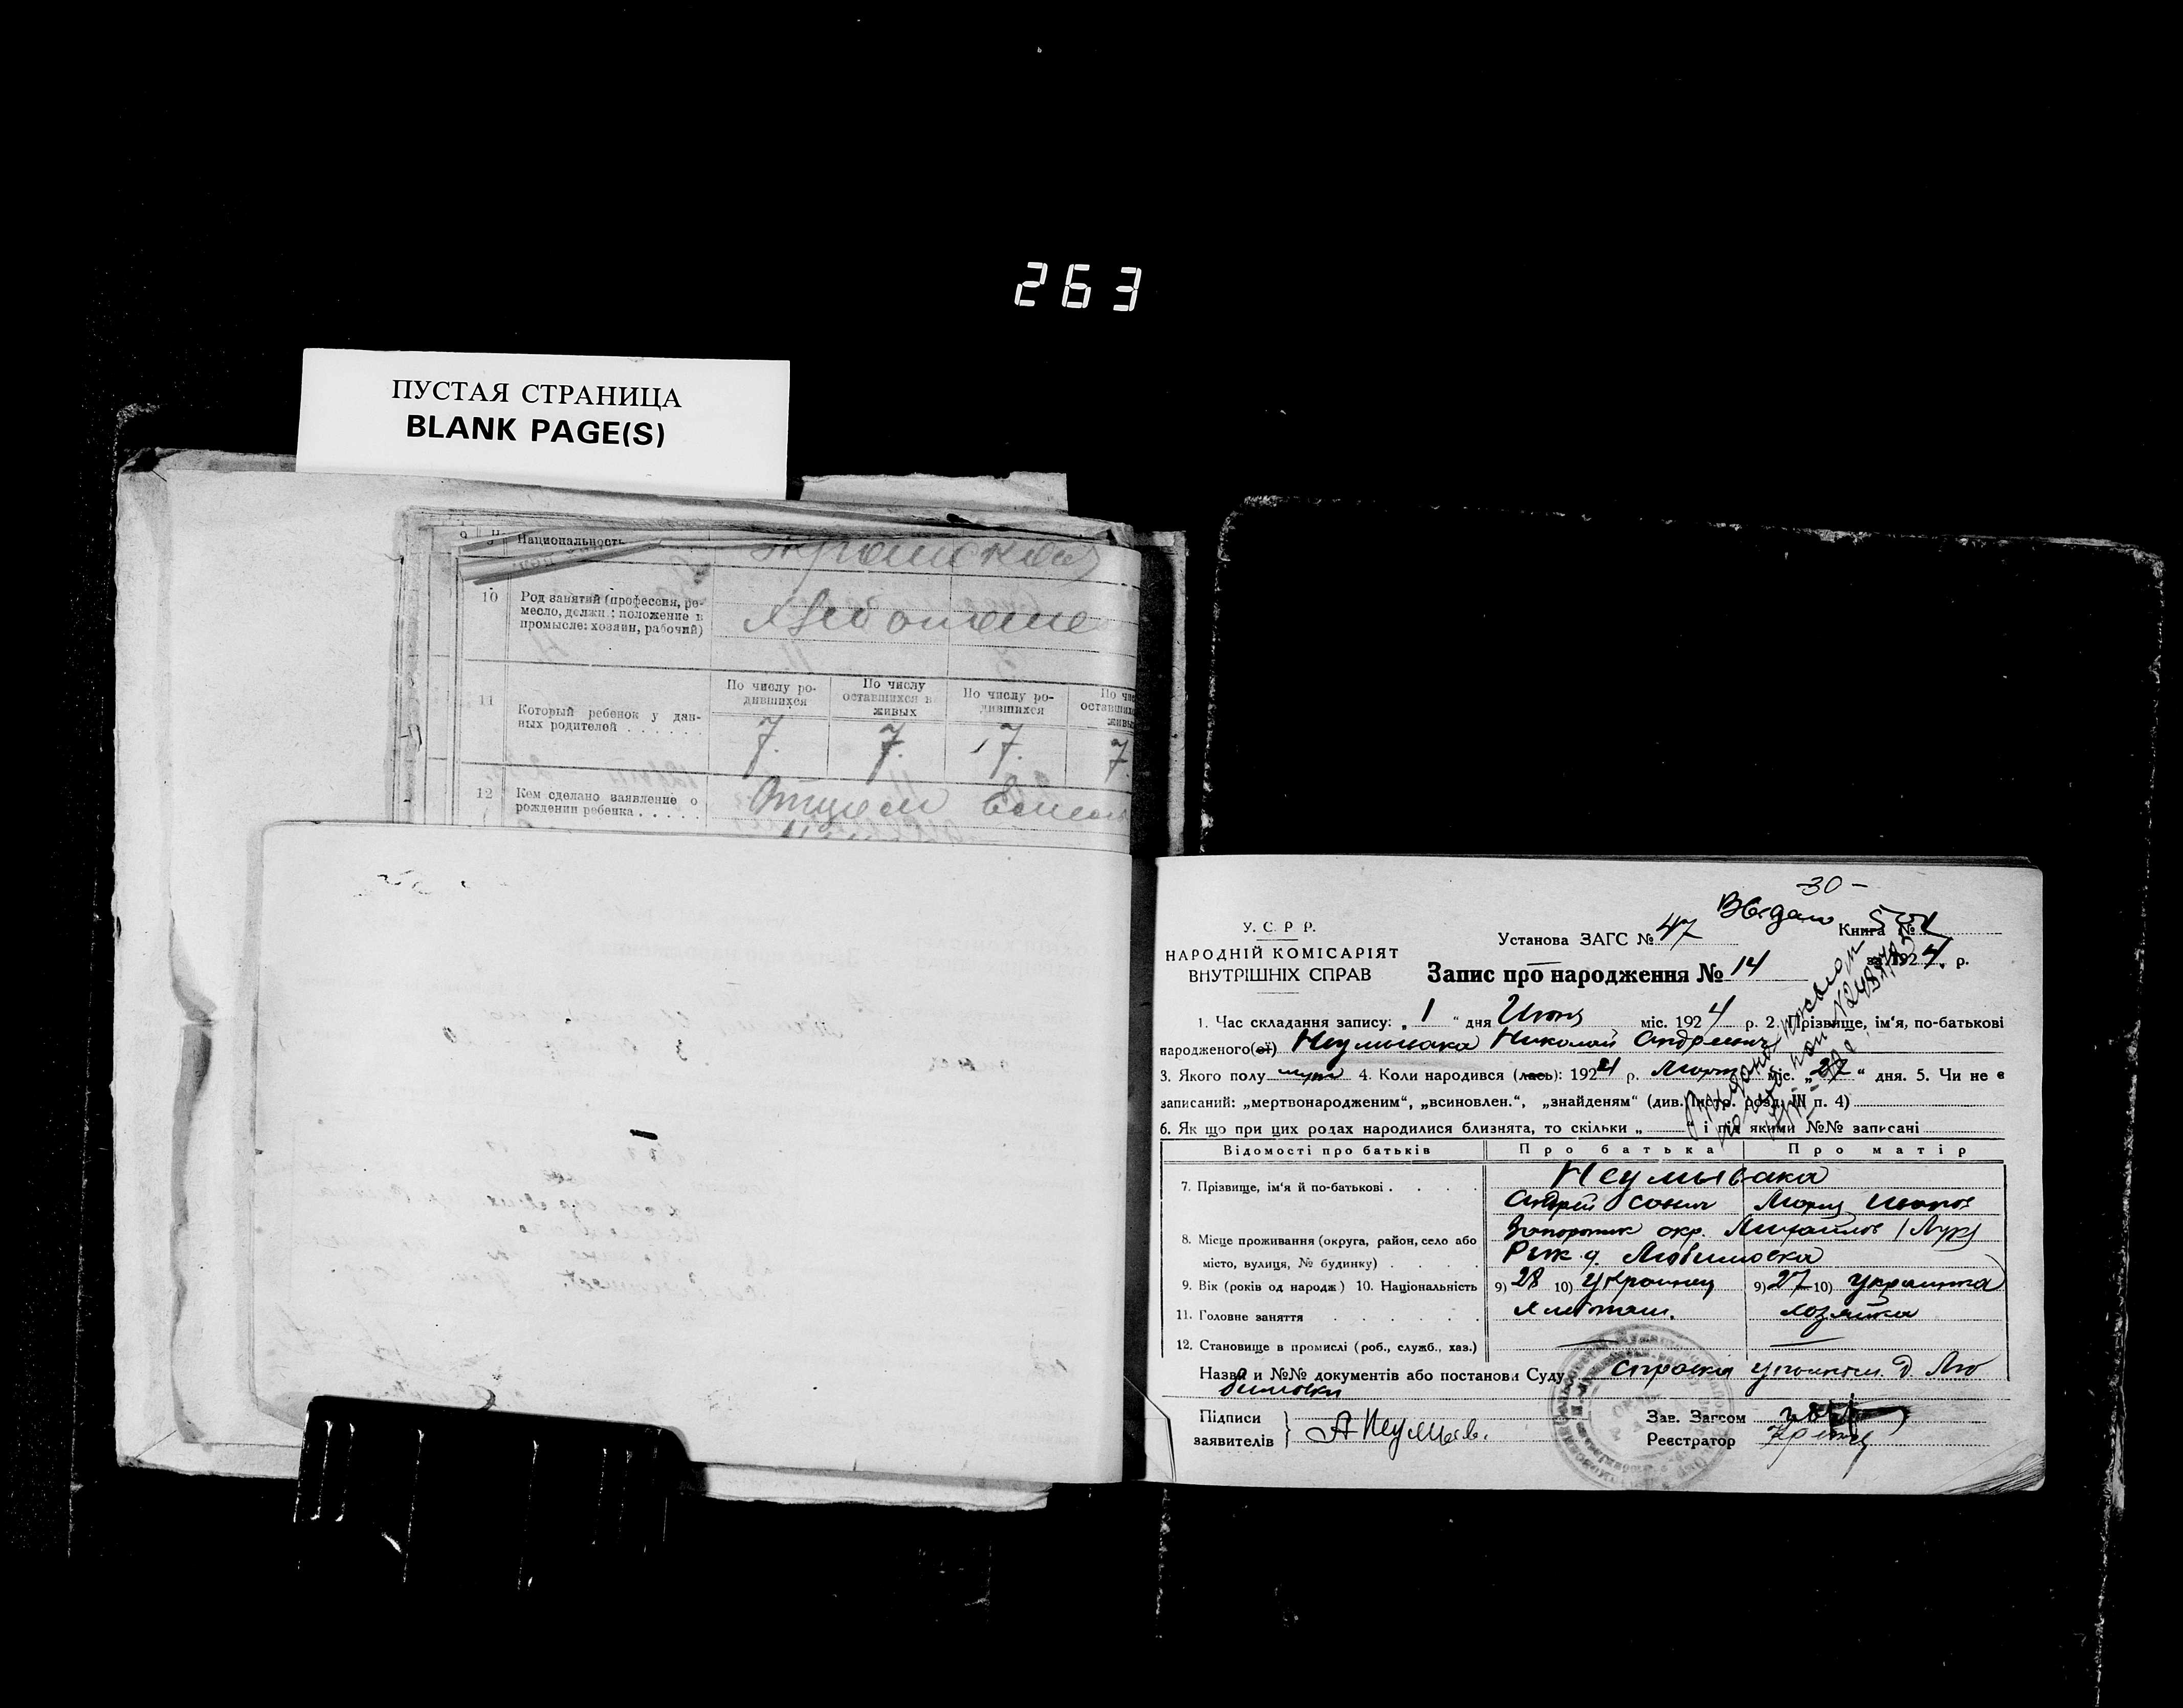 263
ПУСТАЯ СТРАНИЦА
BLANK PAGE(S)
Национальность
10 Род занятий (профессия, ре-
месло, должн.: положение в
промысле: хозяин, рабочий)
11 Который ребенок у дан-
ных родителей . . . . . .
По числу ро-
дившихся
По числу
оставшихся в
живых
По числу ро-
дившихся
7. 7. 7. 7.
12 Кем сделано заявление о
рождении ребенка . . . . .
Отцом
-30-
У. С. Р. Р.
НАРОДНІЙ КОМІСАРІЯТ
ВНУТРІШНІХ СПРАВ
Установа ЗАГС № 47
Книга №
Запис про народження № 14
за 1924 р.
1. Час складання запису: „ 1 “ дня Июня міс. 1924 р. 2. Прізвище, ім'я, по-батькові
народженого(ої) Неумывака Николай Андреевич
3. Якого полу муж 4. Коли народився (лась): 1924 р. Март міс. „27“ дня. 5. Чи не є
записаний: „мертвонародженим“, „всиновлен.“, „знайденям“ (див. Інстр. розд. III п. 4)
6. Як що при цих родах народилися близнята, то скільки „ “ і під якими №№ записані
Відомості про батьків Про батька Про матір
7. Прізвище, ім'я й по-батькові . . . . Неумывака
Андрей Мария
8. Місце проживання (округа, район, село або
місто, вулиця, № будинку) . . . .
окр. Михайлов
д. Любимовка
9. Вік (років од народж) 10. Національність 9) 28 10) Украинец 9) 27 10) украинка
11. Головне заняття . . . . . . хозяйка
12. Становище в промислі (роб., служб., хаз.) —
Назва и №№ документів або постанови Суду справка д. Лю
бимовки
Підписи
заявителів } А Неумыв.
Зав. Загсом
Реєстратор